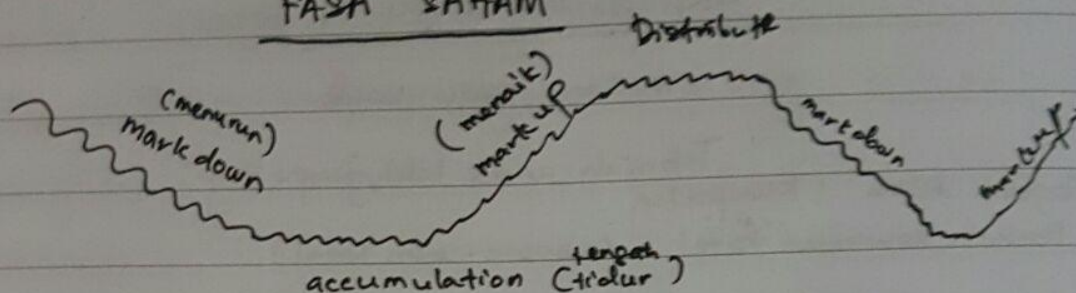 FASA SAHAM
Distribute
(menurun)
mark down
(menaik)
mark up
mark down
mark up
tengah
accumulation (tidur)